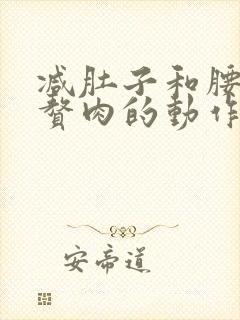 减肚子和腰
赘肉的動作
安帝道